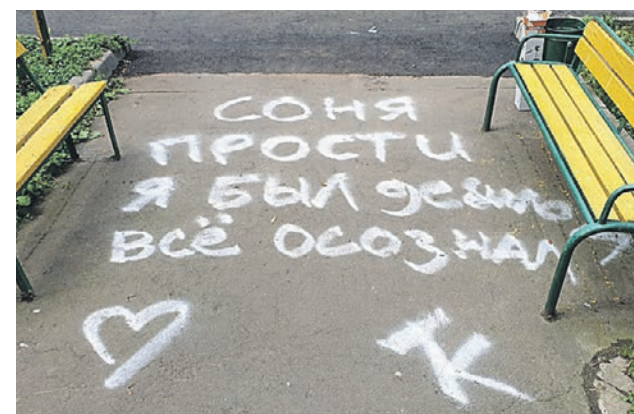 СОНЯ
ПРОСТИ
Я БЫЛ
ВСЁ ОСОЗНАЛ
К